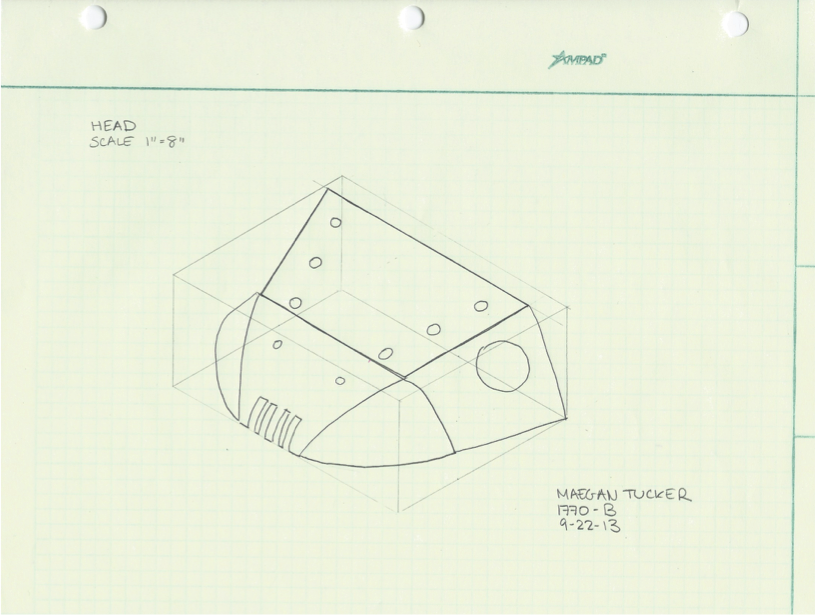 AMPAD
HEAD
SCALE 1"=8"
MAEGAN TUCKER
1770-B
9-22-13